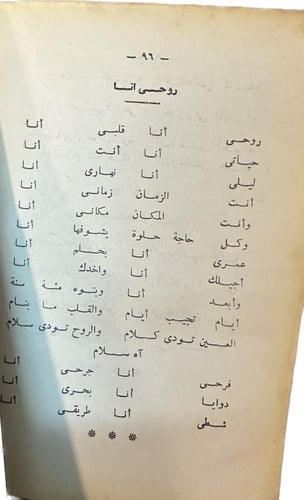 — ٩٦ —
روحى انا
روحى أنا قلبى أنا
حياتى أنا أنت أنا
ليلى أنا نهارى أنا
أنت الزمان زمانى أنا
وأنت المكان مكانى أنا
وكل حاجة حلوة يشوفها أنا
عمرى أنا بحلم أنا
أجيلك أنا واخدك أنا
وأبعد أنا وبتوه مئة سنة
أيام تجيب أيام والقلب ما بنام
العين تودى كلام والروح تودى سلام
آه سلام
فرحى أنا جرحى أنا
دوايا أنا بحرى أنا
شطى أنا طريقى أنا
* * *